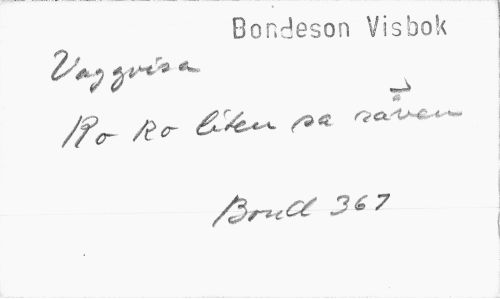 Bondeson Visbok
Vaggvisa
Ro Ro liten sa räven
Bond 367